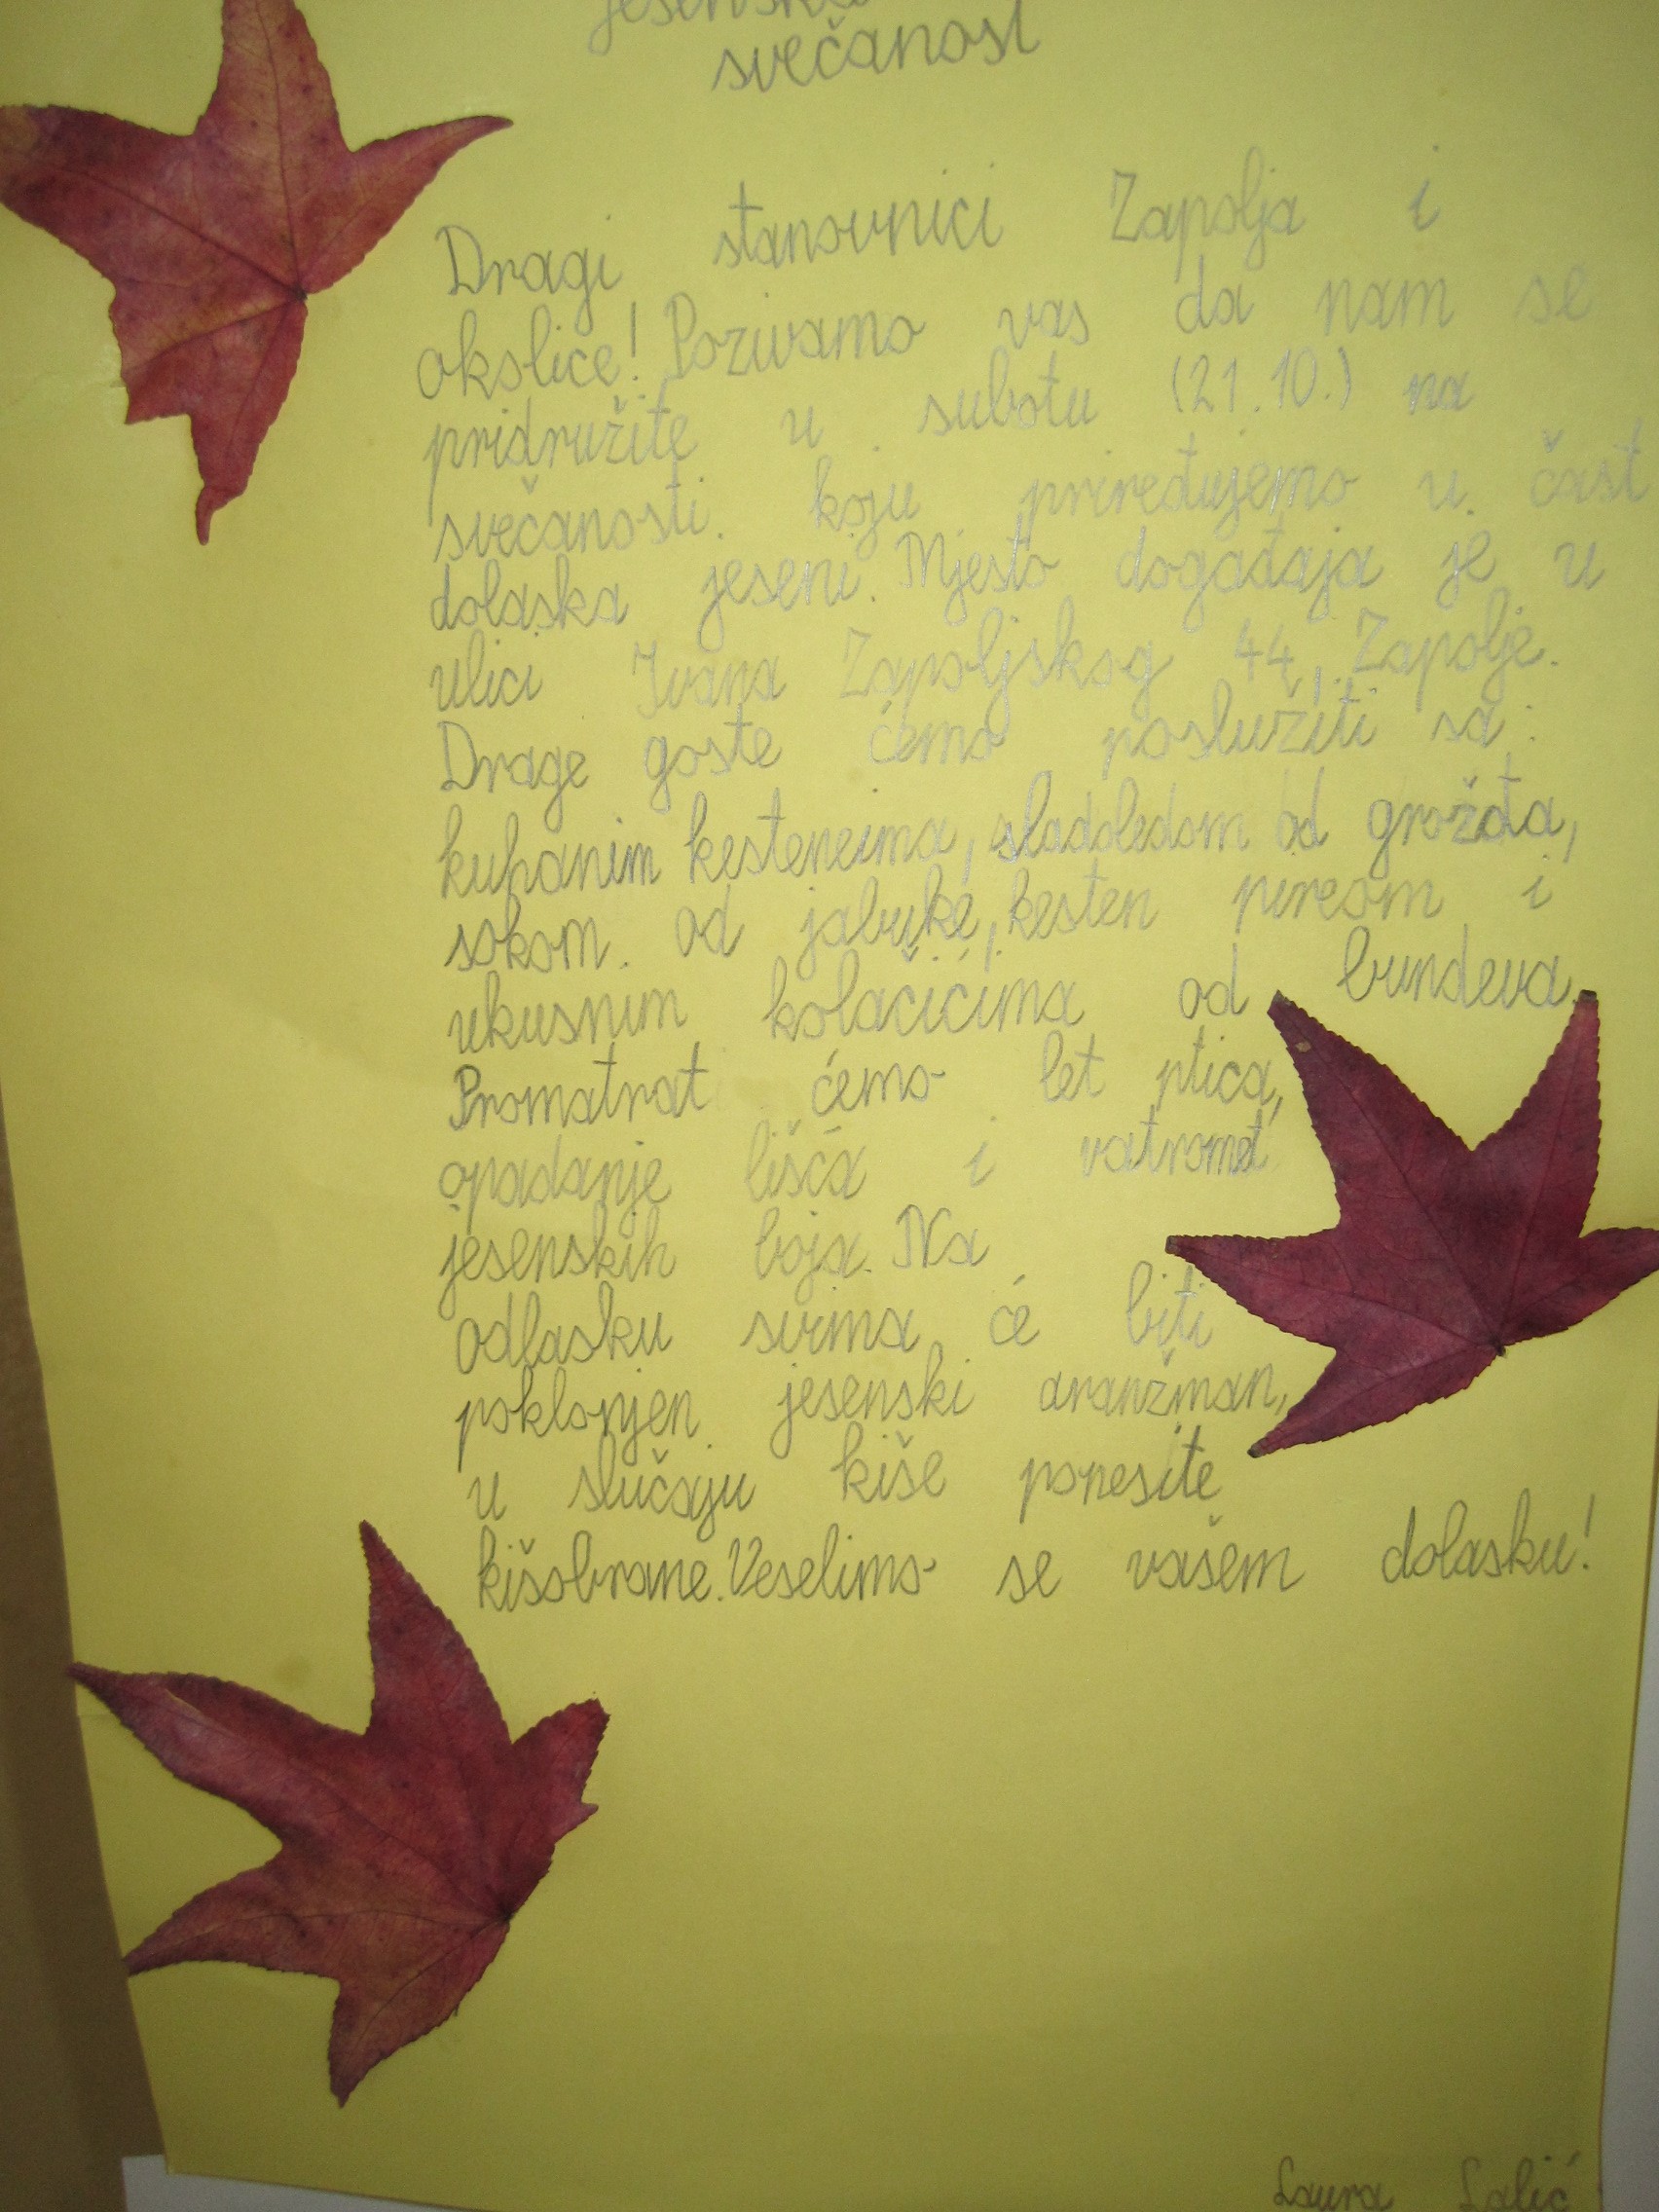 jesenska
svečanost
Dragi stanovnici Zapolja i
okolice! Pozivamo vas da nam se
pridružite u subotu (21.10.) na
svečanosti koju priređujemo u čast
dolaska jeseni. Mjesto događaja je u
ulici Ivana Zapoljskog 44, Zapolje.
Drage goste ćemo poslužiti sa:
kuhanim kesteneima, sladoledom od grožđa,
sokom od jabuke, kesten pireom i
ukusnim kolačićima od bundeva.
Promatrat ćemo let ptica,
opadanje lišća i vatromet
jesenskih boja. Na
odlasku svima će biti
poklonjen jesenski aranžman,
u slučaju kiše ponesite
kišobrane. Veselimo se vašem dolasku!
Laura Lalić